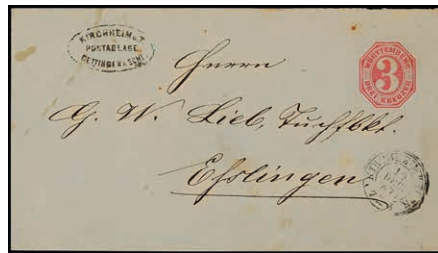 KIRCHHEIM U. T.
POSTABLAGE
OETLINGEN A. SCHL.
WÜRTTEMBERG
3
DREI KREUZER
Herrn
G. W. Lieb, Tuchfbkt.
Eßlingen